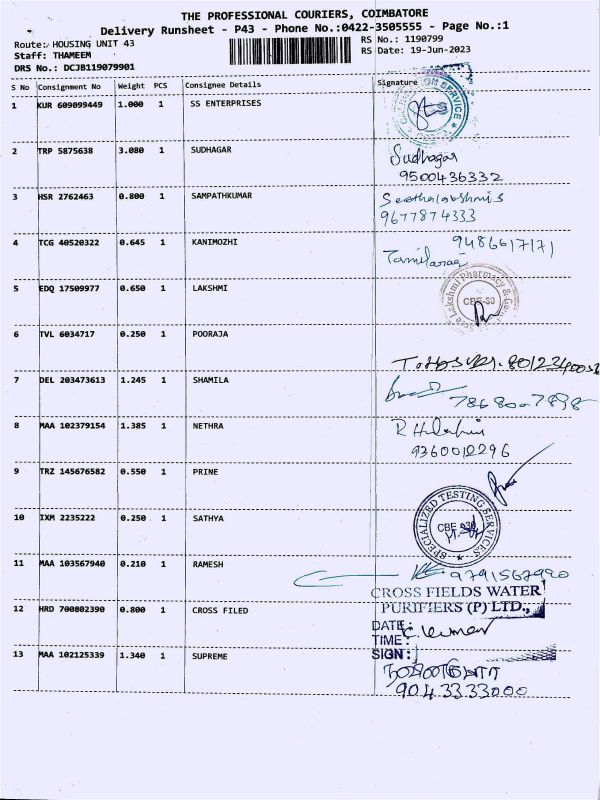 THE PROFESSIONAL COURIERS, COIMBATORE
Delivery Runsheet - P43 - Phone No.:0422-3505555 - Page No.:1
Route: HOUSING UNIT 43 RS No.: 1190799
Staff: THAMEEM RS Date: 19-Jun-2023
DRS No.: DCJB119079901
S No Consignment No Weight PCS Consignee Details Signature
1 KUR 609099449 1.000 1 SS ENTERPRISES
2 TRP 5875638 3.080 1 SUDHAGAR Sudhagar
9500436332
3 HSR 2762463 0.800 1 SAMPATHKUMAR Seethalakshmi S
9677874333
4 TCG 40520322 0.645 1 KANIMOZHI 9486617171
Tamilarasi
5 EDQ 17509977 0.650 1 LAKSHMI Sree Lakshmi Pharmacy &
CBE-30
6 TVL 6034717 0.250 1 POORAJA
7 DEL 203473613 1.245 1 SHAMILA
8 MAA 102379154 1.385 1 NETHRA
9360012296
9 TRZ 145676582 0.550 1 PRINE
10 IXM 2235222 0.250 1 SATHYA SPECIALIZED TESTING SERVICES
11 MAA 103567940 0.210 1 RAMESH 9791567990
12 HRD 700802390 0.800 1 CROSS FILED CROSS FIELDS WATER
PURIFIERS (P) LTD.,
DATE:
TIME:
SIGN:
13 MAA 102125339 1.340 1 SUPREME
9043333000